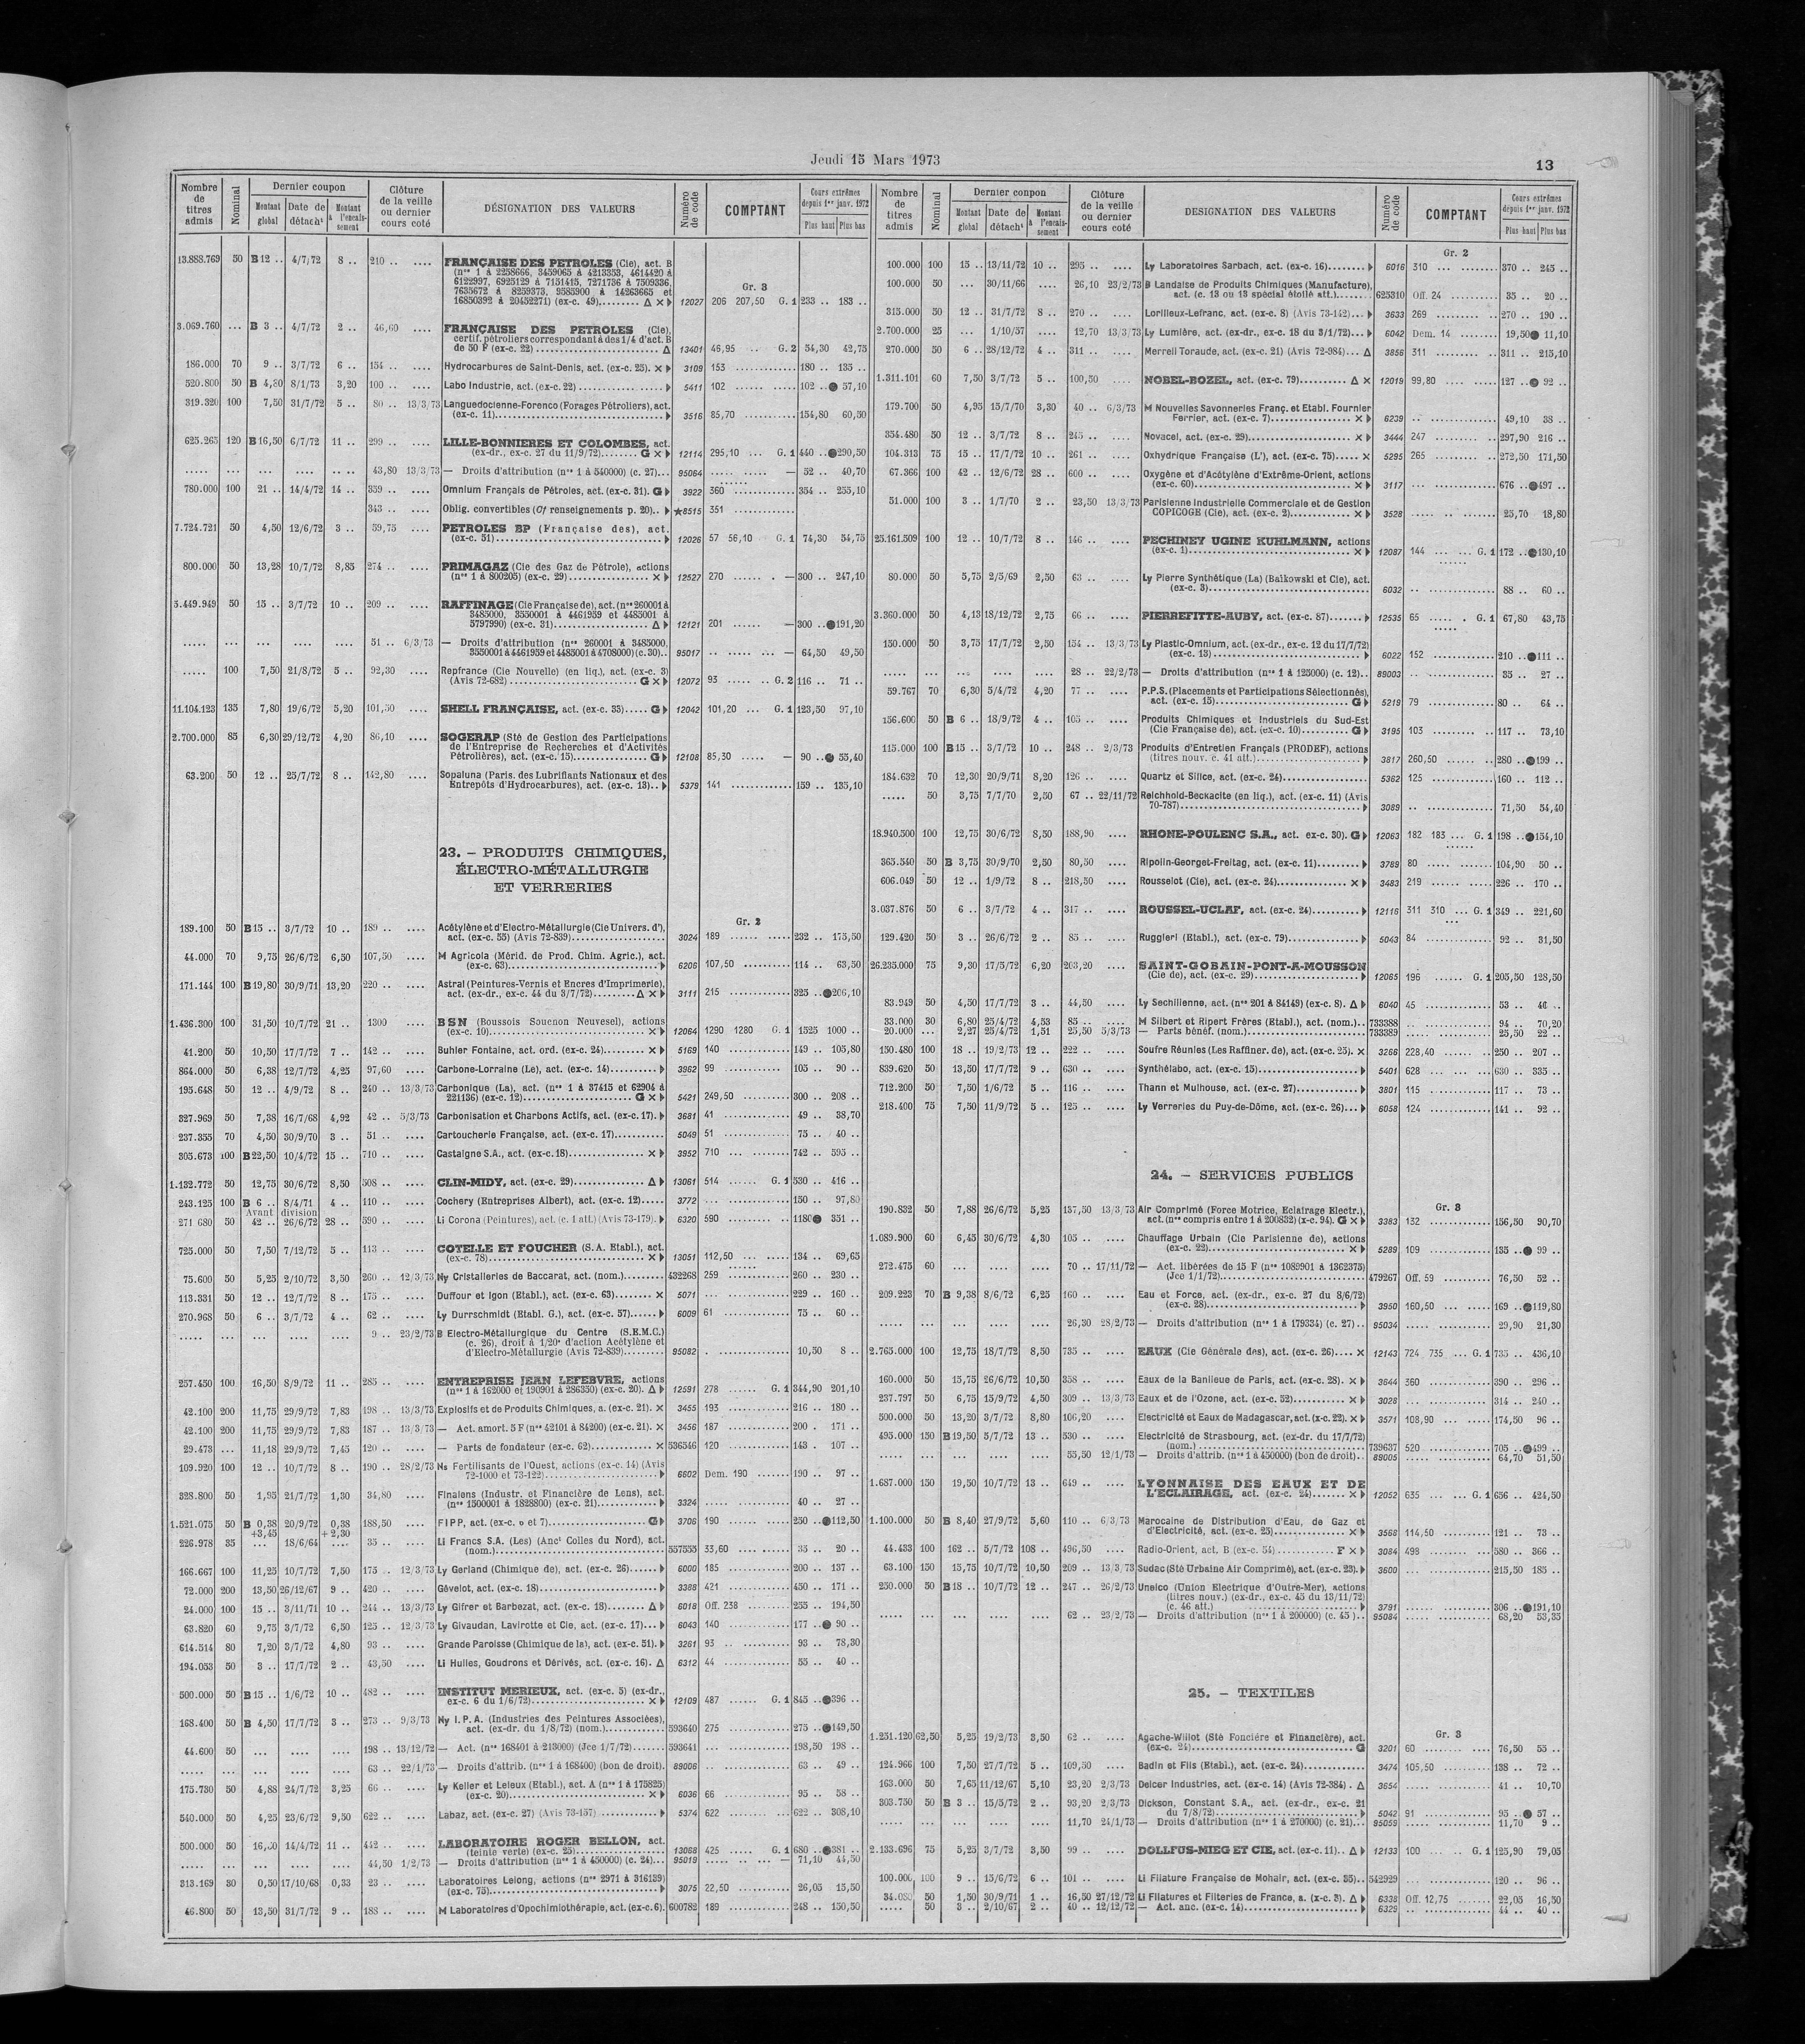 Jeudi 15 Mars 1973
13
Nombre de titres admis | Nominal | Dernier coupon | Montant global | Date de détacht | Montant à l'encaissement | Clôture de la veille ou dernier cours coté | DÉSIGNATION DES VALEURS | Numéro de code | COMPTANT | Cours extrêmes depuis 1er janv. 1972 | Plus haut | Plus bas
Gr. 3
13.888.769 50 B 12 .. 4/7/72 8 .. 210 .. .... FRANÇAISE DES PETROLES (Cie), act. B
(nos 1 à 2258666, 3459065 à 4213353, 4614420 à
6122997, 6925129 à 7151415, 7271736 à 7509336,
7635672 à 8259373, 9585900 à 14263665 et
16850392 à 20452271) (ex-c. 49)......... Δ ✕ ▶ 12027 206 207,50 G. 1 233 .. 183 ..
3.069.760 ... B 3 .. 4/7/72 2 .. 46,60 .... FRANÇAISE DES PETROLES (Cie),
certif. pétroliers correspondant à des 1/4 d'act. B
de 50 F (ex-c. 22) ........ Δ 13401 46,95 .. G. 2 54,30 42,75
186.000 70 9 .. 3/7/72 6 .. 154 .. .... Hydrocarbures de Saint-Denis, act. (ex-c. 25). ✕ ▶ 3109 153 ........ 180 .. 135 ..
520.800 50 B 4,80 8/1/73 3,20 100 .. .... Labo Industrie, act. (ex-c. 22) ........ ▶ 5411 102 ........ 102 .. ● 57,10
319.320 100 7,50 31/7/72 5 .. 80 .. 13/3/73 Languedocienne-Forenco (Forages Pétroliers), act.
(ex-c. 11)........ ▶ 3516 85,70 ........ 154,80 60,50
625.265 120 B 16,50 6/7/72 11 .. 299 .. .... LILLE-BONNIERES ET COLOMBES, act.
(ex-dr., ex-c. 27 du 11/9/72)....... G ✕ ▶ 12114 295,10 ... G. 1 440 .. ●290,50
..... ... ... .... .... 43,80 13/3/73 — Droits d'attribution (nos 1 à 540000) (c. 27)... 95064 ........ — 52 .. 40,70
780.000 100 21 .. 14/4/72 14 .. 359 .. .... Omnium Français de Pétroles, act. (ex-c. 31). G ▶ 3922 360 ........ 354 .. 255,10
343 .. .... Oblig. convertibles (Cf renseignements p. 20).. ▶ ★8515 351 ........
7.724.721 50 4,50 12/6/72 3 .. 59,75 .... PETROLES BP (Française des), act.
(ex-c. 51)........ ▶ 12026 57 56,10 G. 1 74,30 54,75
800.000 50 13,28 10/7/72 8,85 274 .. .... PRIMAGAZ (Cie des Gaz de Pétrole), actions
(nos 1 à 800205) (ex-c. 29)........ ✕ ▶ 12527 270 ...... . — 300 .. 247,10
5.449.949 50 15 .. 3/7/72 10 .. 209 .. .... RAFFINAGE (Cie Française de), act. (nos 260001 à
3485000, 3550001 à 4461959 et 4485001 à
5797990) (ex-c. 31)........ Δ ▶ 12121 201 ...... — 300 .. ●191,20
..... ... ... .... .... 51 .. 6/3/73 — Droits d'attribution (nos 260001 à 3485000,
3550001 à 4461959 et 4485001 à 4708000) (c. 30).. 95017 .. ...... ... — 64,50 49,50
..... 100 7,50 21/8/72 5 .. 92,30 .... Repfrance (Cie Nouvelle) (en liq.), act. (ex-c. 3)
(Avis 72-682) ........ G ✕ ▶ 12072 93 ..... .. G. 2 116 .. 71 ..
11.104.123 135 7,80 19/6/72 5,20 101,50 .... SHELL FRANÇAISE, act. (ex-c. 35)..... G ▶ 12042 101,20 ... G. 1 123,50 97,10
2.700.000 85 6,30 29/12/72 4,20 86,10 .... SOGERAP (Sté de Gestion des Participations
de l'Entreprise de Recherches et d'Activités
Pétrolières), act. (ex-c. 15)........ G ▶ 12108 85,30 ..... — 90 .. ● 55,40
63.200 50 12 .. 25/7/72 8 .. 142,80 .... Sopaluna (Paris. des Lubrifiants Nationaux et des
Entrepôts d'Hydrocarbures), act. (ex-c. 13).. ▶ 5379 141 ........ 159 .. 135,10
23. – PRODUITS CHIMIQUES,
ÉLECTRO-MÉTALLURGIE
ET VERRERIES
Gr. 2
189.100 50 B 15 .. 3/7/72 10 .. 189 .. .... Acétylène et d'Electro-Métallurgie (Cie Univers. d'),
act. (ex-c. 55) (Avis 72-839)........ 3024 189 ........ 232 .. 175,50
44.000 70 9,75 26/6/72 6,50 107,50 .... M Agricola (Mérid. de Prod. Chim. Agric.), act.
(ex-c. 63)........ ▶ 6206 107,50 ........ 114 .. 63,50
171.144 100 B 19,80 30/9/71 13,20 220 .. .... Astral (Peintures-Vernis et Encres d'Imprimerie),
act. (ex-dr., ex-c. 44 du 3/7/72)......... Δ ✕ ▶ 3111 215 ........ 325 .. ●206,10
1.436.300 100 31,50 10/7/72 21 .. 1300 .... BSN (Boussois Souchon Neuvesel), actions
(ex-c. 10)........ ✕ ▶ 12064 1290 1280 G. 1 1525 1000 ..
41.200 50 10,50 17/7/72 7 .. 142 .. .... Buhler Fontaine, act. ord. (ex-c. 24)......... ✕ ▶ 5169 140 ........ 149 .. 105,80
864.000 50 6,38 12/7/72 4,25 97,60 .... Carbone-Lorraine (Le), act. (ex-c. 14).......... ▶ 3962 99 ........ 105 .. 90 ..
195.648 50 12 .. 4/9/72 8 .. 240 .. 13/3/73 Carbonique (La), act. (nos 1 à 37415 et 62904 à
221136) (ex-c. 12)........ G ✕ ▶ 5421 249,50 ........ 300 .. 208 ..
327.969 50 7,38 16/7/68 4,92 42 .. 5/3/73 Carbonisation et Charbons Actifs, act. (ex-c. 17). ▶ 3681 41 ........ 49 .. 38,70
237.355 70 4,50 30/9/70 3 .. 51 .. .... Cartoucherie Française, act. (ex-c. 17).......... 5049 51 ........ 75 .. 40 ..
305.673 100 B 22,50 10/4/72 15 .. 710 .. .... Castaigne S.A., act. (ex-c. 18)........ ✕ ▶ 3952 710 ........ 742 .. 595 ..
1.132.772 50 12,75 30/6/72 8,50 508 .. .... CLIN-MIDY, act. (ex-c. 29)........ Δ ▶ 13061 514 ...... G. 1 530 .. 416 ..
243.125 100 B 6 .. 8/4/71 4 .. 110 .. .... Cochery (Entreprises Albert), act. (ex-c. 12)..... 3772 ........ 150 .. 97,80
Avant division
271 680 50 42 .. 26/6/72 28 .. 590 .. .... Li Corona (Peintures), act. (c. 1 att.) (Avis 73-179). ▶ 6320 590 ........ 1180● 351 ..
725.000 50 7,50 7/12/72 5 .. 113 .. .... COTELLE ET FOUCHER (S.A. Etabl.), act.
(ex-c. 78)........ ✕ ▶ 13051 112,50 ........ 134 .. 69,65
75.600 50 5,25 2/10/72 3,50 260 .. 12/3/73 Ny Cristalleries de Baccarat, act. (nom.)......... 432268 259 ........ 260 .. 230 ..
113.331 50 12 .. 12/7/72 8 .. 175 .. .... Duffour et Igon (Etabl.), act. (ex-c. 63)........ ✕ 5071 ........ 229 .. 160 ..
270.968 50 6 .. 3/7/72 4 .. 62 .. .... Ly Durrschmidt (Etabl. G.), act. (ex-c. 57)...... ▶ 6009 61 ........ 75 .. 60 ..
..... ... ... .... .... 9 .. 23/2/73 B Electro-Métallurgique du Centre (S.E.M.C.)
(c. 26), droit à 1/20e d'action Acétylène et
d'Electro-Métallurgie (Avis 72-839)......... 95082 ........ 10,50 8 ..
257.450 100 16,50 8/9/72 11 .. 285 .. .... ENTREPRISE JEAN LEFEBVRE, actions
(nos 1 à 162000 et 190901 à 286350) (ex-c. 20). Δ ▶ 12591 278 ...... G. 1 344,90 201,10
42.100 200 11,75 29/9/72 7,83 198 .. 13/3/73 Explosifs et de Produits Chimiques, a. (ex-c. 21). ✕ 3455 193 ........ 216 .. 180 ..
42.100 200 11,75 29/9/72 7,83 187 .. 13/3/73 — Act. amort. 5 F (nos 42101 à 84200) (ex-c. 21). ✕ 3456 187 ........ 200 . 171 ..
29.473 ... 11,18 29/9/72 7,45 120 .. .... — Parts de fondateur (ex-c. 62)............ ✕ 536546 120 ........ 143 . 107 ..
109.920 100 12 .. 10/7/72 8 .. 190 .. 28/2/73 Ns Fertilisants de l'Ouest, actions (ex-c. 14) (Avis
72-1000 et 73-122)........ ▶ 6602 Dem. 190 ....... 190 .. 97 ..
328.800 50 1,95 21/7/72 1,30 34,80 .... Finalens (Industr. et Financière de Lens), act.
(nos 1500001 à 1828800) (ex-c. 21)........... ▶ 3324 ........ 40 .. 27 ..
1.521.075 50 B 0,38 20/9/72 0,38 188,50 .... FIPP, act. (ex-c. 6 et 7)........ G ▶ 3706 190 ........ 250 .. ●112,50
+3,45 +2,30
226.978 35 ... 18/6/64 .... 35 .. .... Li Francs S.A. (Les) (Anct Colles du Nord), act.
(nom.)........ 557555 33,60 ........ 35 .. 20 ..
166.667 100 11,25 10/7/72 7,50 175 .. 12/3/73 Ly Gerland (Chimique de), act. (ex-c. 26)...... ▶ 6000 185 ........ 200 .. 137 ..
72.000 200 13,50 26/12/67 9 .. 420 .. .... Gévelot, act. (ex-c. 18)........ ▶ 3388 421 ........ 450 .. 171 ..
24.000 100 15 .. 3/11/71 10 .. 244 .. 13/3/73 Ly Gifrer et Barbezat, act. (ex-c. 18)........ Δ ▶ 6018 Off. 238 ........ 255 .. 194,50
63.820 60 9,75 3/7/72 6,50 125 .. 12/3/73 Ly Givaudan, Lavirotte et Cie, act. (ex-c. 17)... ▶ 6043 140 ........ 177 .. ● 90 ..
614.514 80 7,20 3/7/72 4,80 93 .. .... Grande Paroisse (Chimique de la), act. (ex-c. 51). ▶ 3261 93 ........ 93 .. 78,30
194.053 50 3 .. 17/7/72 2 .. 43,50 .... Li Huiles, Goudrons et Dérivés, act. (ex-c. 16). Δ 6312 44 ........ 55 .. 40 ..
500.000 50 B 15 .. 1/6/72 10 .. 482 .. .... INSTITUT MERIEUX, act. (ex-c. 5) (ex-dr.,
ex-c. 6 du 1/6/72)........ ✕ ▶ 12109 487 ...... G. 1 845 .. ●396 ..
168.400 50 B 4,50 17/7/72 3 .. 273 .. 9/3/73 Ny I.P.A. (Industries des Peintures Associées),
act. (ex-dr. du 1/8/72) (nom.)............ 593640 275 ........ 275 .. ●149,50
44.600 50 ... .... .... 198 .. 13/12/72 — Act. (nos 168401 à 213000) (Jce 1/7/72)....... 593641 ........ 198,50 198 ..
..... ... ... .... .... 63 .. 22/1/73 — Droits d'attrib. (nos 1 à 168400) (bon de droit). 89006 ........ 63 .. 49 ..
175.730 50 4,88 24/7/72 3,25 66 .. .... Ly Keller et Leleux (Etabl.), act. A (nos 1 à 175825)
(ex-c. 20)........ ✕ ▶ 6036 66 ........ 95 .. 58 ..
540.000 50 4,25 23/6/72 9,50 622 .. .... Labaz, act. (ex-c. 27) (Avis 73-157) ........ ▶ 5374 622 ........ 622 .. 308,10
500.000 50 16,50 14/4/72 11 .. 442 .. .... LABORATOIRE ROGER BELLON, act.
(teinte verte) (ex-c. 25)........ 13068 425 ..... G. 1 680 .. ●381 ..
..... ... ... .... .... 44,50 1/2/73 — Droits d'attribution (nos 1 à 450000) (c. 24)... 95019 ........ — 71,10 44,50
313.169 30 0,50 17/10/68 0,33 23 .. .... Laboratoires Lelong, actions (nos 2971 à 316139)
(ex-c. 75)........ ▶ 3075 22,50 ........ 26,05 15,50
46.800 50 13,50 31/7/72 9 .. 188 .. .... M Laboratoires d'Opochimiothérapie, act. (ex-c. 6). 600782 189 ........ 248 .. 150,50
Nombre de titres admis | Nominal | Dernier coupon | Montant global | Date de détacht | Montant à l'encaissement | Clôture de la veille ou dernier cours coté | DESIGNATION DES VALEURS | Numéro de code | COMPTANT | Cours extrêmes depuis 1er janv. 1972 | Plus haut | Plus bas
Gr. 2
100.000 100 15 .. 13/11/72 10 .. 295 .. .... Ly Laboratoires Sarbach, act. (ex-c. 16)........ ▶ 6016 310 ........ 370 .. 245 ..
100.000 50 ... 30/11/66 .... 26,10 23/2/73 B Landaise de Produits Chimiques (Manufacture),
act. (c. 13 ou 13 spécial étoilé att.)....... 625310 Off. 24 ........ 35 .. 20 ..
315.000 50 12 .. 31/7/72 8 .. 270 .. .... Lorilleux-Lefranc, act. (ex-c. 8) (Avis 73-142)... ▶ 3633 269 ........ 270 .. 190 ..
2.700.000 25 ... 1/10/57 .... 12,70 13/3/73 Ly Lumière, act. (ex-dr., ex-c. 18 du 3/1/72)... ▶ 6042 Dem. 14 ........ 19,50● 11,10
270.000 50 6 .. 28/12/72 4 .. 311 .. .... Merrell Toraude, act. (ex-c. 21) (Avis 72-984)... Δ 3856 311 ........ 311 .. 215,10
1.311.101 60 7,50 3/7/72 5 .. 100,50 .... NOBEL-BOZEL, act. (ex-c. 79).......... Δ ✕ 12019 99,80 ........ 127 .. ● 92 ..
179.700 50 4,95 15/7/70 3,30 40 .. 6/3/73 M Nouvelles Savonneries Franç. et Etabl. Fournier
Ferrier, act. (ex-c. 7)........ ✕ ▶ 6239 ........ 49,10 38 ..
354.480 50 12 .. 3/7/72 8 .. 245 .. .... Novacel, act. (ex-c. 29)........ ✕ ▶ 3444 247 ........ 297,90 216 ..
104.313 75 15 .. 17/7/72 10 .. 261 .. .... Oxhydrique Française (L'), act. (ex-c. 75)..... ✕ 5295 265 ........ 272,50 171,50
67.366 100 42 .. 12/6/72 28 .. 600 .. .... Oxygène et d'Acétylène d'Extrême-Orient, actions
(ex-c. 60)........ ✕ ▶ 3117 ........ 676 .. ●497 ..
51.000 100 3 .. 1/7/70 2 .. 23,50 13/3/73 Parisienne Industrielle Commerciale et de Gestion
COPICOGE (Cie), act. (ex-c. 2)............ ✕ ▶ 3528 ........ 25,70 18,80
25.161.509 100 12 .. 10/7/72 8 .. 146 .. .... PECHINEY UGINE KUHLMANN, actions
(ex-c. 1)........ ✕ ▶ 12087 144 ... ... G. 1 172 .. ●130,10
80.000 50 5,75 2/5/69 2,50 63 .. .... Ly Pierre Synthétique (La) (Baikowski et Cie), act.
(ex-c. 3)........ 6032 ........ 88 .. 60 ..
3.360.000 50 4,13 18/12/72 2,75 66 .. .... PIERREFITTE-AUBY, act. (ex-c. 87)....... ▶ 12535 65 ..... . G. 1 67,80 43,75
150.000 50 3,75 17/7/72 2,50 154 .. 13/3/73 Ly Plastic-Omnium, act. (ex-dr., ex-c. 12 du 17/7/72)
(ex-c. 13)........ ▶ 6022 152 ........ 210 .. ●111 ..
..... ... ... .... .... 28 .. 22/2/73 — Droits d'attribution (nos 1 à 125000) (c. 12).. 89003 ........ 35 .. 27 ..
59.767 70 6,30 5/4/72 4,20 77 .. .... P.P.S. (Placements et Participations Sélectionnés),
act. (ex-c. 15)........ G ▶ 5219 79 ........ 80 .. 64 ..
156.600 50 B 6 .. 18/9/72 4 .. 105 .. .... Produits Chimiques et Industriels du Sud-Est
(Cie Française de), act. (ex-c. 10).......... G ▶ 3195 103 ........ 117 .. 73,10
115.000 100 B 15 .. 3/7/72 10 .. 248 .. 2/3/73 Produits d'Entretien Français (PRODEF), actions
(titres nouv. c. 41 att.)........ ▶ 3817 260,50 ........ 280 .. ●199 ..
184.632 70 12,30 20/9/71 8,20 126 .. .... Quartz et Silice, act. (ex-c. 24)........ 5362 125 ........ 160 .. 112 ..
..... 50 3,75 7/7/70 2,50 67 .. 22/11/72 Reichhold-Beckacite (en liq.), act. (ex-c. 11) (Avis
70-787)........ ▶ 3089 ........ 71,50 54,40
18.940.500 100 12,75 30/6/72 8,50 188,90 .... RHONE-POULENC S.A., act. ex-c. 30). G ▶ 12063 182 183 ... G. 1 198 .. ●154,10
365.540 50 B 3,75 30/9/70 2,50 80,50 .... Ripolin-Georget-Freitag, act. (ex-c. 11)......... ▶ 3789 80 ........ 104,90 50 ..
606.049 50 12 .. 1/9/72 8 .. 218,50 .... Rousselot (Cie), act. (ex-c. 24)............... ✕ ▶ 3483 219 ........ 226 .. 170 ..
3.037.876 50 6 .. 3/7/72 4 .. 317 .. .... ROUSSEL-UCLAF, act. (ex-c. 24).......... ▶ 12116 311 310 ... G. 1 349 .. 221,60
129.420 50 3 .. 26/6/72 2 .. 85 .. .... Ruggieri (Etabl.), act. (ex-c. 79)............... ▶ 5043 84 ........ 92 .. 31,50
26.235.000 75 9,30 17/5/72 6,20 203,20 .... SAINT-GOBAIN-PONT-A-MOUSSON
(Cie de), act. (ex-c. 29)........ ▶ 12065 196 ...... G. 1 205,50 128,50
83.949 50 4,50 17/7/72 3 .. 44,50 .... Ly Sechilienne, act. (nos 201 à 84149) (ex-c. 8). Δ ▶ 6040 45 ........ 53 .. 46 ..
33.000 30 6,80 25/4/72 4,53 85 .. .... M Silbert et Ripert Frères (Etabl.), act. (nom.).. 733388 ........ 94 .. 70,20
20.000 ... 2,27 25/4/72 1,51 25,50 5/3/73 — Parts bénéf. (nom.)........ 733389 ........ 25,50 22 ..
150.480 100 18 .. 19/2/73 12 .. 222 .. .... Soufre Réunies (Les Raffiner. de), act. (ex-c. 25). ✕ 3266 228,40 ........ 250 .. 207 ..
839.620 50 13,50 17/7/72 9 .. 630 .. .... Synthélabo, act. (ex-c. 15)........ ▶ 5401 628 ........ 630 .. 335 ..
712.200 50 7,50 1/6/72 5 .. 116 .. .... Thann et Mulhouse, act. (ex-c. 27)............. ▶ 3801 115 ........ 117 .. 73 ..
218.400 75 7,50 11/9/72 5 .. 125 .. .... Ly Verreries du Puy-de-Dôme, act. (ex-c. 26)... ▶ 6058 124 ........ 141 .. 92 ..
24. – SERVICES PUBLICS
Gr. 3
190.832 50 7,88 26/6/72 5,25 137,50 13/3/73 Air Comprimé (Force Motrice, Eclairage Electr.),
act. (nos compris entre 1 à 200832) (x-c. 94). G ✕ ▶ 3383 132 ........ 156,50 90,70
1.089.900 60 6,45 30/6/72 4,30 105 .. .... Chauffage Urbain (Cie Parisienne de), actions
(ex-c. 22)........ ✕ ▶ 5289 109 ........ 135 .. ● 99 ..
272.475 60 ... .... .... 70 .. 17/11/72 — Act. libérées de 15 F (nos 1089901 à 1362375)
(Jce 1/1/72)........ 479267 Off. 59 ........ 76,50 52 ..
209.223 70 B 9,38 8/6/72 6,25 160 .. .... Eau et Force, act. (ex-dr., ex-c. 27 du 8/6/72)
(ex-c. 28)........ ▶ 3950 160,50 ........ 169 .. ●119,80
..... ... ... .... .... 26,30 28/2/73 — Droits d'attribution (nos 1 à 179334) (c. 27).. 95034 ........ 29,90 21,30
2.765.000 100 12,75 18/7/72 8,50 735 .. .... EAUX (Cie Générale des), act. (ex-c. 26).... ✕ 12143 724 735 ... G. 1 735 .. 436,10
160.000 50 15,75 26/6/72 10,50 358 .. .... Eaux de la Banlieue de Paris, act. (ex-c. 28). ✕ ▶ 3644 360 ........ 390 .. 296 ..
237.797 50 6,75 15/9/72 4,50 309 .. 13/3/73 Eaux et de l'Ozone, act. (ex-c. 52)........... ✕ ▶ 3028 ........ 314 .. 240 ..
500.000 50 13,20 3/7/72 8,80 106,20 .... Electricité et Eaux de Madagascar, act. (x-c. 22). ✕ ▶ 3571 108,90 ........ 174,50 96 ..
495.000 150 B 19,50 5/7/72 13 .. 530 .. .... Electricité de Strasbourg, act. (ex-dr. du 17/7/72)
(nom.)........ 739637 520 ........ 705 .. ●499 ..
..... ... ... .... .... 55,50 12/1/73 — Droits d'attrib. (nos 1 à 450000) (bon de droit).. 89005 ........ 64,70 51,50
1.687.000 150 19,50 10/7/72 13 .. 649 .. .... LYONNAISE DES EAUX ET DE
L'ECLAIRAGE, act. (ex-c. 24)....... ✕ ▶ 12052 635 ... ... G. 1 656 .. 424,50
1.100.000 50 B 8,40 27/9/72 5,60 110 .. 6/3/73 Marocaine de Distribution d'Eau, de Gaz et
d'Electricité, act. (ex-c. 25)............... ✕ ▶ 3568 114,50 ........ 121 .. 73 ..
44.433 100 162 .. 5/7/72 108 .. 496,50 .... Radio-Orient, act. B (ex-c. 54)............. F ✕ ▶ 3084 498 ........ 580 .. 366 ..
63.100 150 15,75 10/7/72 10,50 209 .. 13/3/73 Sudac (Sté Urbaine Air Comprimé), act. (ex-c. 23). ▶ 3600 ........ 215,50 185 ..
250.000 50 B 18 .. 10/7/72 12 .. 247 .. 26/2/73 Unelco (Union Electrique d'Outre-Mer), actions
(titres nouv.) (ex-dr., ex-c. 45 du 13/11/72)
(c. 46 att.) ........ ▶ 3791 ........ 306 .. ●191,10
..... ... ... .... .... 62 .. 23/2/73 — Droits d'attribution (nos 1 à 200000) (c. 45).. 95084 ........ 68,20 53,35
25. – TEXTILES
Gr. 3
1.251.120 62,50 5,25 19/2/73 3,50 62 .. .... Agache-Willot (Sté Foncière et Financière), act.
(ex-c. 24)........ G 3201 60 ........ 76,50 55 ..
124.966 100 7,50 27/7/72 5 .. 109,50 .... Badin et Fils (Etabl.), act. (ex-c. 24)........... 3474 105,50 ........ 138 .. 72 ..
163.000 50 7,65 11/12/67 5,10 23,20 2/3/73 Delcer Industries, act. (ex-c. 14) (Avis 72-384) . Δ 3654 ........ 41 .. 10,70
303.750 50 B 3 .. 15/5/72 2 .. 93,20 2/3/73 Dickson, Constant S.A., act. (ex-dr., ex-c. 21
du 7/8/72)........ ▶ 5042 91 ........ 95 .. ● 57 ..
..... ... ... .... .... 11,70 24/1/73 — Droits d'attribution (nos 1 à 270000) (c. 21)... 95059 ........ 11,70 9 ..
2.133.696 75 5,25 3/7/72 3,50 99 .. .... DOLLFUS-MIEG ET CIE, act. (ex-c. 11).. Δ ▶ 12133 100 ... .. G. 1 125,90 79,05
100.000 100 9 .. 15/6/72 6 .. 101 .. .... Li Filature Française de Mohair, act. (ex-c. 55).. 542929 ........ 120 .. 96 ..
50 1,50 30/9/71 1 .. 16,50 27/12/72 Li Filatures et Filteries de France, a. (x-c. 3). Δ ▶ 6338 Off. 12,75 ........ 22,05 16,50
..... 50 3 .. 2/10/67 2 .. 40 .. 12/12/72 — Act. anc. (ex-c. 14)........ ▶ 6329 ........ 44 .. 40 ..